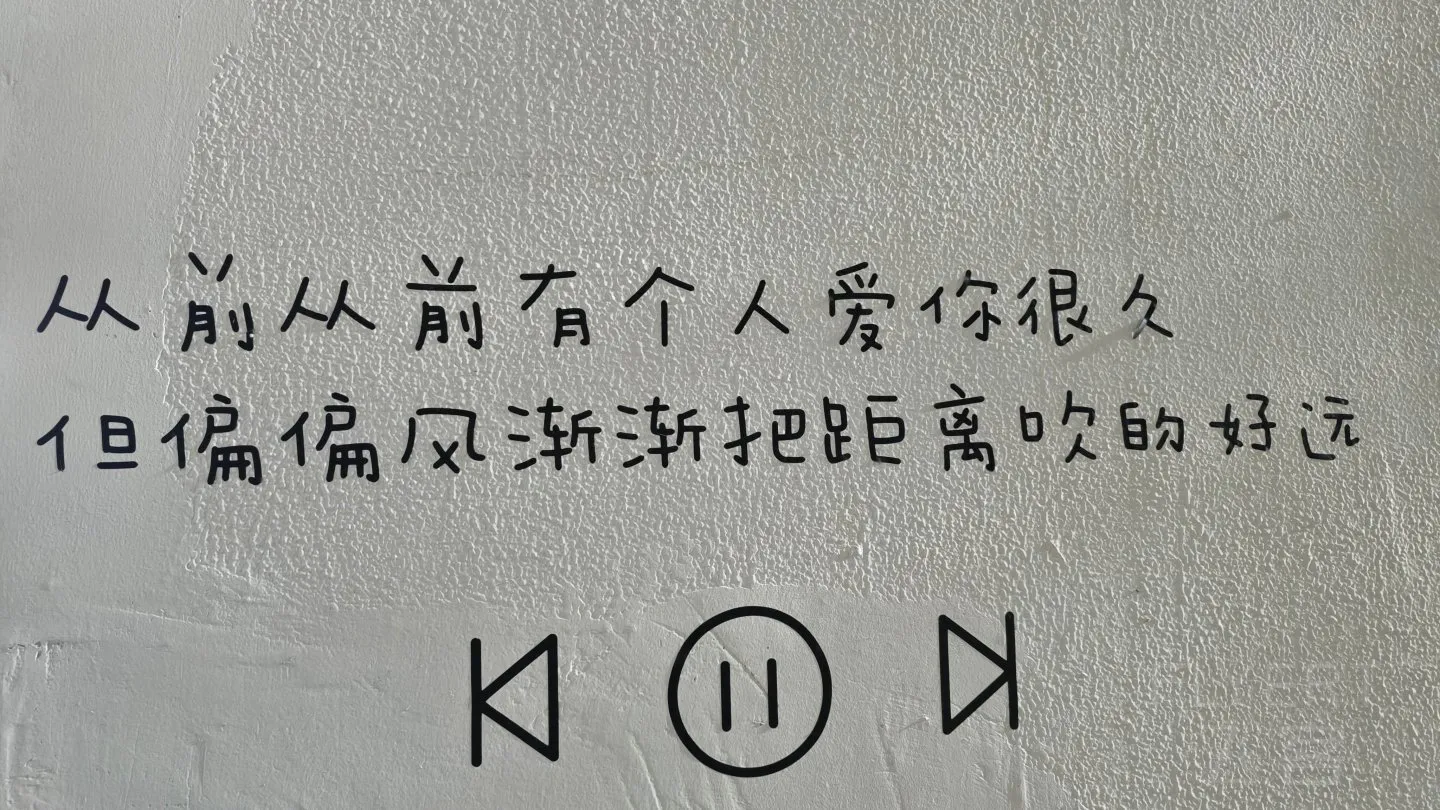 从前从前有个人爱你很久
但偏偏风渐渐把距离吹的好远